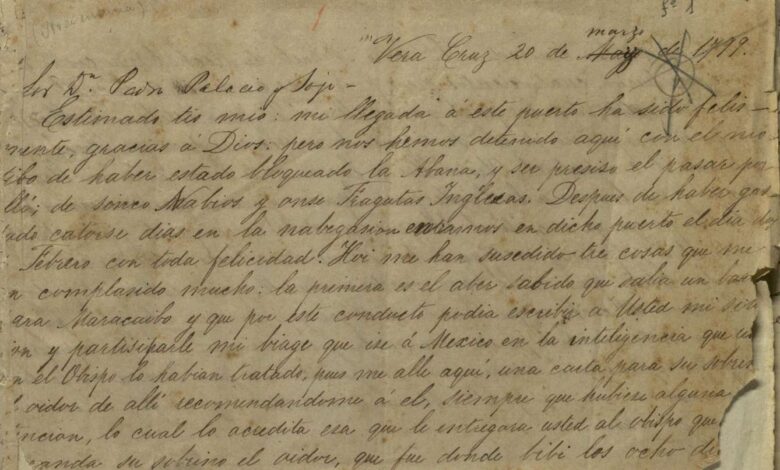 Vera Cruz 20 de marzo de 1799.
Sor Dn Pedro Palacio y Sojo
Estimado tio mio: mi llegada á este puerto ha sido felis-
mente, gracias á Dios: pero nos hemos detenido aquí con el mo
tibo de haber estado bloqueado la Abana, y ser presiso el pasar por
allí; de sinco Nabios y onse Fragatas Inglesas. Despues de haber gas
tado catorse dias en la nabegasion entramos en dicho puerto el dia dos
Febrero con toda felicidad. Hoi me han susedido tre cosas que me
n complasido mucho: la primera es el aber sabido que salia un
ara Maracaibo y que por este conducto podia escribir á Usted mi
on y partisiparle mi biage que ise á Mexico en la inteligencia que
n el Obispo lo habian tratado, pues me allé aquí, una carta para su sobrino
l oidor de allí recomendandome á el, siempre que hubiese alguna
encion, lo cual lo acredita esa que le entregara usted al obispo que
anda su sobrino el oidor, que fue donde bibi los ocho dias